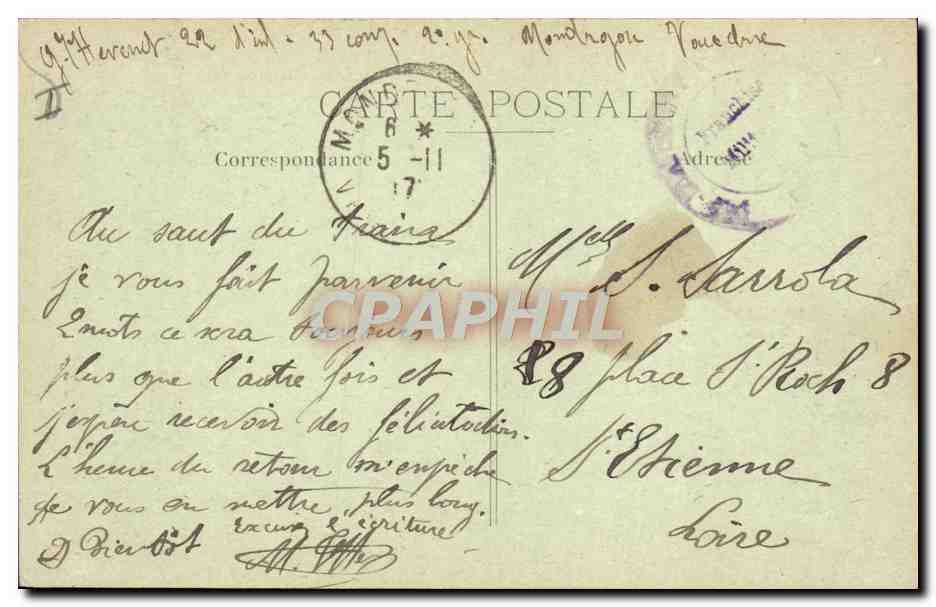 22 d'inf. 33 comp. 2e gr. Mondragon Vaucluse
CARTE POSTALE
Correspondance
Adresse
MOND
6 *
5 -11
17
Franchise
Au saut du train
je vous fait parvenir
2 mots ce sera toujours
plus que l'autre fois et
j'espère recevoir des félicitations.
L'heure du retour m'enpèche
de vous en mettre plus long.
Excusez l'écriture
A Bientôt
Melle S. Sarrola
8 place St Roch 8
St Etienne
Loire
CPAPHIL